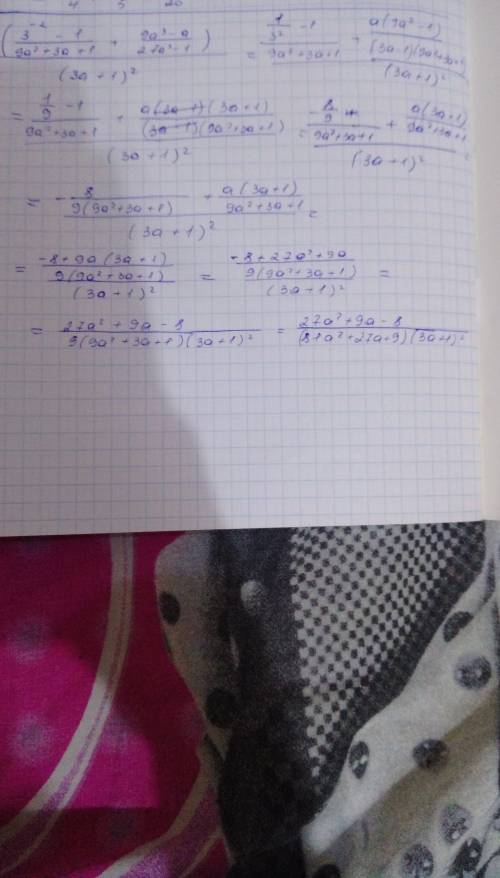 4 5 20
( (3^-2 - 1)/(9a²+3a+1) + (9a³-a)/(27a³-1) ) / (3a+1)² = ( (1/3² - 1)/(9a²+3a+1) + a(9a²-1)/((3a-1)(9a²+3a+1)) ) / (3a+1)²
= ( (1/9 - 1)/(9a²+3a+1) + a(3a-1)(3a+1)/((3a-1)(9a²+3a+1)) ) / (3a+1)² = ( (-8/9)/(9a²+3a+1) + a(3a+1)/(9a²+3a+1) ) / (3a+1)² =
= ( - 8/(9(9a²+3a+1)) + a(3a+1)/(9a²+3a+1) ) / (3a+1)² =
= ( (-8+9a(3a+1))/(9(9a²+3a+1)) ) / (3a+1)² = ( (-8+27a²+9a)/(9(9a²+3a+1)) ) / (3a+1)² =
= (27a²+9a-8)/(9(9a²+3a+1)(3a+1)²) = (27a²+9a-8)/((81a²+27a+9)(3a+1)²)